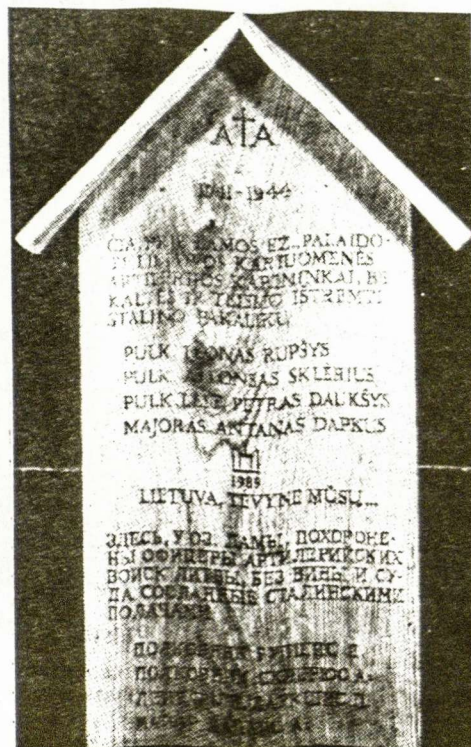 A†A
1941-1944
ČIA, PRIE LAMOS EŽ., PALAIDO-
TI LIETUVOS KARIUOMENĖS
ARTILERIJOS KARININKAI, BE
KALTĖS IR TEISMO IŠTREMTI
STALINO PAKALIKŲ
PULK. LEONAS RUPŠYS
PULK. SKLĖRIUS
PULK. LEIT. PETRAS DAUKŠYS
MAJORAS ANTANAS DAPKUS
1989
LIETUVA, TĖVYNE MŪSŲ...
ЗДЕСЬ, У ОЗ. ЛАМЫ, ПОХОРОНЕ-
НЫ ОФИЦЕРЫ АРТИЛЕРИЙСКИХ
ВОЙСК ЛИТВЫ, БЕЗ ВИНЫ И СУ-
ДА СОСЛАННЫЕ СТАЛИНСКИМИ
ПОЛКОВНИК
ПОЛКОВНИК